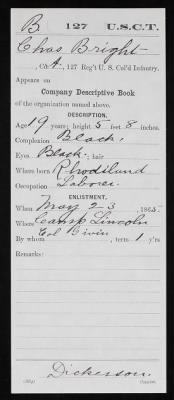 B 127 U.S.C.T.
Chas Bright
, Co. A, 127 Reg't U. S. Col'd Infantry.
Appears on
Company Descriptive Book
of the organization named above.
DESCRIPTION.
Age 19 years; height 5 feet 8 inches.
Complexion Black.
Eyes Black; hair
Where born Rhodiland
Occupation Laborer
ENLISTMENT.
When May 23, 1865.
Where Camp Lincoln
By whom Col , term 1 y'rs
Remarks:
Dickerson.
Copyist.